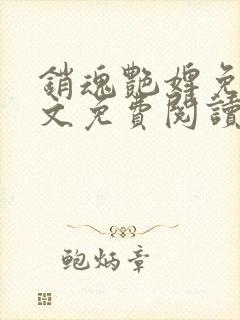 銷魂艷婢免
文免費閱讀
鲍炳章